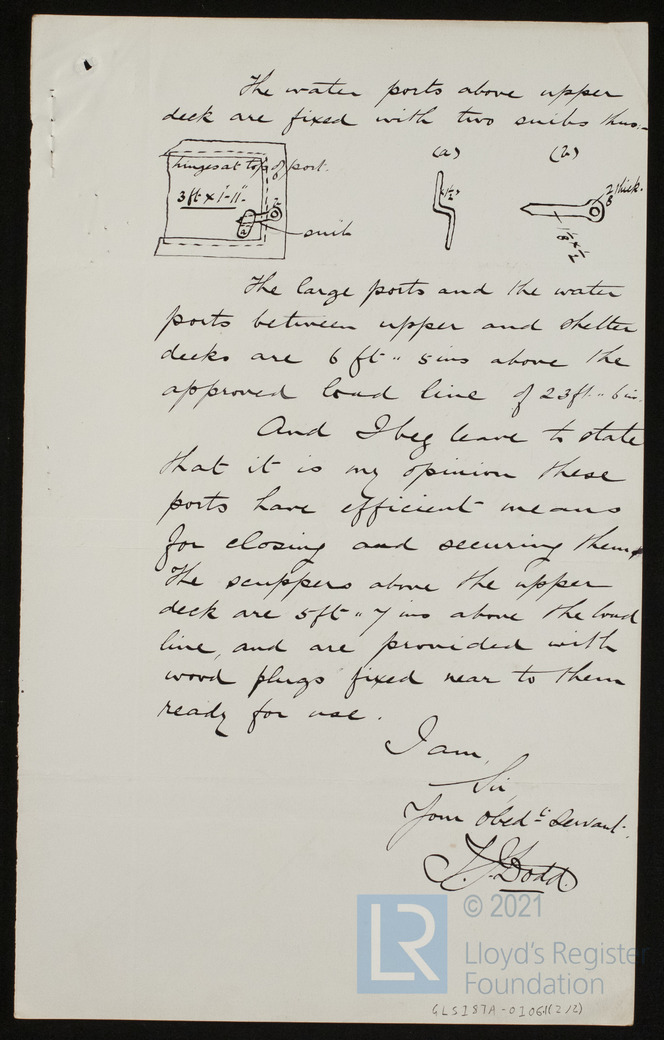 The water ports above upper
deck are fixed with two snibs thus:-
(a) (b)
hinges at top of port.
3 ft x 1'-11".
a
snib
The large ports and the water
ports between upper and shelter
decks are 6 ft " 5 ins above the
approved load line of 23 ft " 6 in.
And I beg leave to state
that it is my opinion these
ports have efficient means
for closing and securing them.
The scuppers above the upper
deck are 5 ft " 7 ins above the load
line, and are provided with
wood plugs fixed near to them
ready for use.
I am,
Sir,
Your obedt Servant,
Dodd.
LR © 2021
Lloyd's Register
Foundation
GLS187A-0106L(2/2)